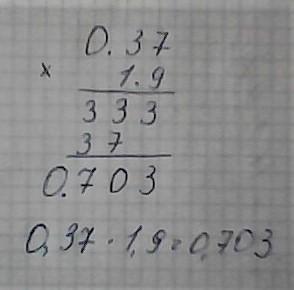 0.37
× 1.9
333
37
0.703
0,37 · 1,9 = 0,703